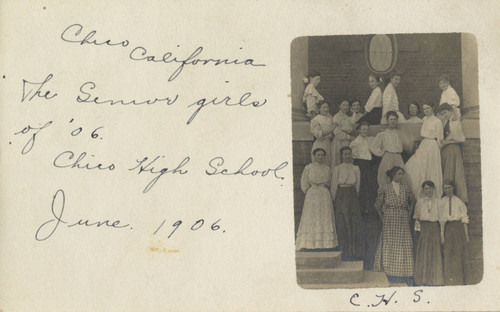 Chico
California
The Senior girls
of '06.
Chico High School.
June. 1906.
C. H. S.